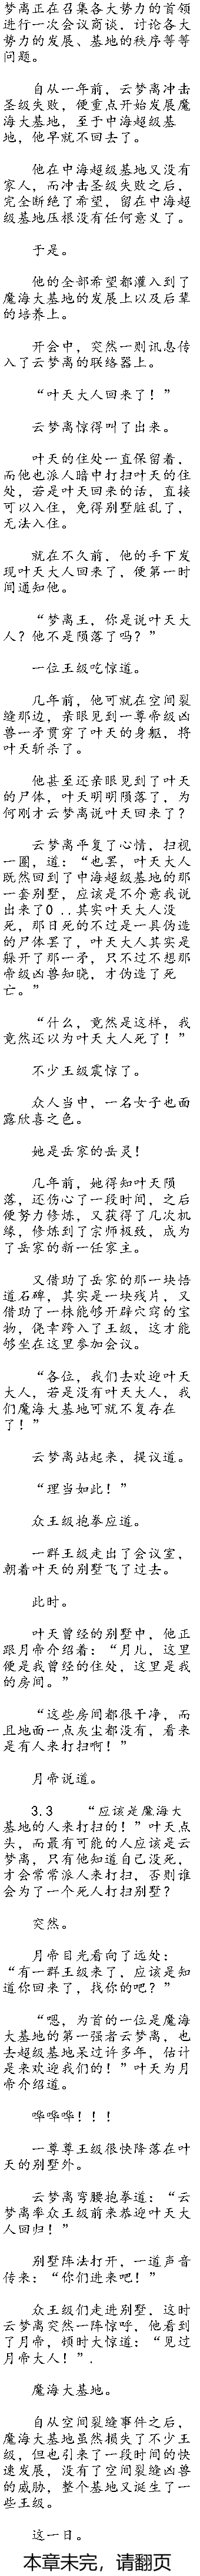 梦离正在召集各大势力的首领
进行一次会议商谈，讨论各大
势力的发展、基地的秩序等等
问题。
自从一年前，云梦离冲击
圣级失败，便重点开始发展魔
海大基地，至于中海超级基
地，他早就不回去了。
他在中海超级基地又没有
家人，而冲击圣级失败之后，
完全断绝了希望，留在中海超
级基地压根没有任何意义了。
于是。
他的全部希望都灌入到了
魔海大基地的发展上以及后辈
的培养上。
开会中，突然一则讯息传
入了云梦离的联络器上。
“叶天大人回来了！”
云梦离惊得叫了出来。
叶天的住处一直保留着，
而他也派人暗中打扫叶天的住
处，若是叶天回来的话，直接
可以入住，免得别墅脏乱了，
无法入住。
就在不久前，他的手下发
现叶天大人回来了，便第一时
间通知他。
“梦离王，你是说叶天大
人？他不是陨落了吗？”
一位王级吃惊道。
几年前，他可就在空间裂
缝那边，亲眼见到一尊帝级凶
兽一矛贯穿了叶天的身躯，将
叶天斩杀了。
他甚至还亲眼见到了叶天
的尸体，叶天明明陨落了，为
何刚才云梦离说叶天回来了？
云梦离平复了心情，扫视
一圈，道：“也罢，叶天大人
既然回到了中海超级基地的那
一套别墅，应该是不介意我说
出来了0 ..其实叶天大人没
死，那日死的不过是一具伪造
的尸体罢了，叶天大人其实是
躲开了那一矛，只不过不想那
帝级凶兽知晓，才伪造了死
亡。”
“什么，竟然是这样，我
竟然还以为叶天大人死了！”
不少王级震惊了。
众人当中，一名女子也面
露欣喜之色。
她是岳家的岳灵！
几年前，她得知叶天陨
落，还伤心了一段时间，之后
便努力修炼，又获得了几次机
缘，修炼到了宗师极致，成为
了岳家的新一任家主。
又借助了岳家的那一块悟
道石碑，其实是一块残片，又
借助了一株能够开辟穴窍的宝
物，侥幸跨入了王级，这才能
够坐在这里参加会议。
“各位，我们去欢迎叶天
大人，若是没有叶天大人，我
们魔海大基地可就不复存在
了！”
云梦离站起来，提议道。
“理当如此！”
众王级抱拳应道。
一群王级走出了会议室，
朝着叶天的别墅飞了过去。
此时。
叶天曾经的别墅中，他正
跟月帝介绍着：“月儿，这里
便是我曾经的住处，这里是我
的房间。”
“这些房间都很干净，而
且地面一点灰尘都没有，看来
是有人来打扫啊！”
月帝说道。
3.3 “应该是魔海大
基地的人来打扫的！”叶天点
头，而最有可能的人应该是云
梦离，只有他知道自己没死，
才会常常派人来打扫，否则谁
会为了一个死人打扫别墅？
突然。
月帝目光看向了远处：
“有一群王级来了，应该是知
道你回来了，找你的吧？”
“嗯，为首的一位是魔海
大基地的第一强者云梦离，也
去超级基地呆过许多年，估计
是来欢迎我们的！”叶天为月
帝介绍道。
哗哗哗！！！
一尊尊王级很快降落在叶
天的别墅外。
云梦离弯腰抱拳道：“云
梦离率众王级前来恭迎叶天大
人回归！”
别墅阵法打开，一道声音
传来：“你们进来吧！”
众王级们走进别墅，这时
云梦离突然一阵惊呼，他看到
了月帝，顿时大惊道：“见过
月帝大人！”.
魔海大基地。
自从空间裂缝事件之后，
魔海大基地虽然损失了不少王
级，但也引来了一段时间的快
速发展，没有了空间裂缝凶兽
的威胁，整个基地又诞生了一
些王级。
这一日。
本章未完，请翻页